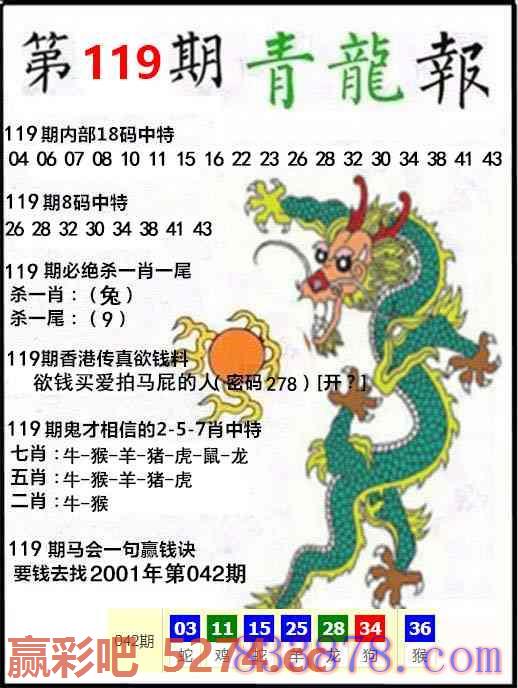 第119期青龍報
119期内部18码中特
04 06 07 08 10 11 15 16 22 23 26 28 32 30 34 38 41 43
119期8码中特
26 28 32 30 34 38 41 43
119期必绝杀一肖一尾
杀一肖：（兔）
杀一尾：（9）
119期香港传真欲钱料
欲钱买爱拍马屁的人(密码278)[开？]
119期鬼才相信的2-5-7肖中特
七肖：牛-猴-羊-猪-虎-鼠-龙
五肖：牛-猴-羊-猪-虎
二肖：牛-猴
119期马会一句赢钱诀
要钱去找2001年第042期
042期 03 11 15 25 28 34 36
蛇 鸡 龙 狗 猴
赢彩吧 5274.cc